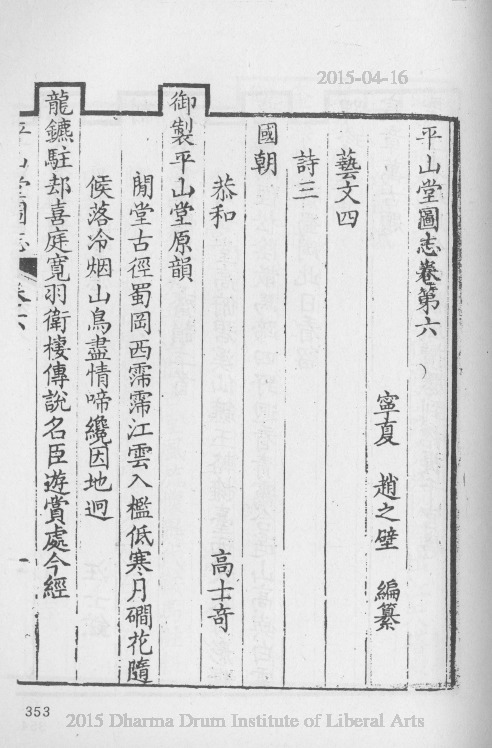 2015-04-16
平山堂圖志卷第六
寧夏 趙之壁 編纂
藝文四
詩三
國朝
恭和
御製平山堂原韻
高士奇
閒堂古徑蜀岡西霈霈江雲入檻低寒月磵花隨
候落冷烟山鳥盡情啼纔因地迥
龍鑣駐却喜庭寬羽衛棲傳說名臣遊賞處今經
平山堂圖志
卷六
一
353
2015 Dharma Drum Institute of Liberal Arts